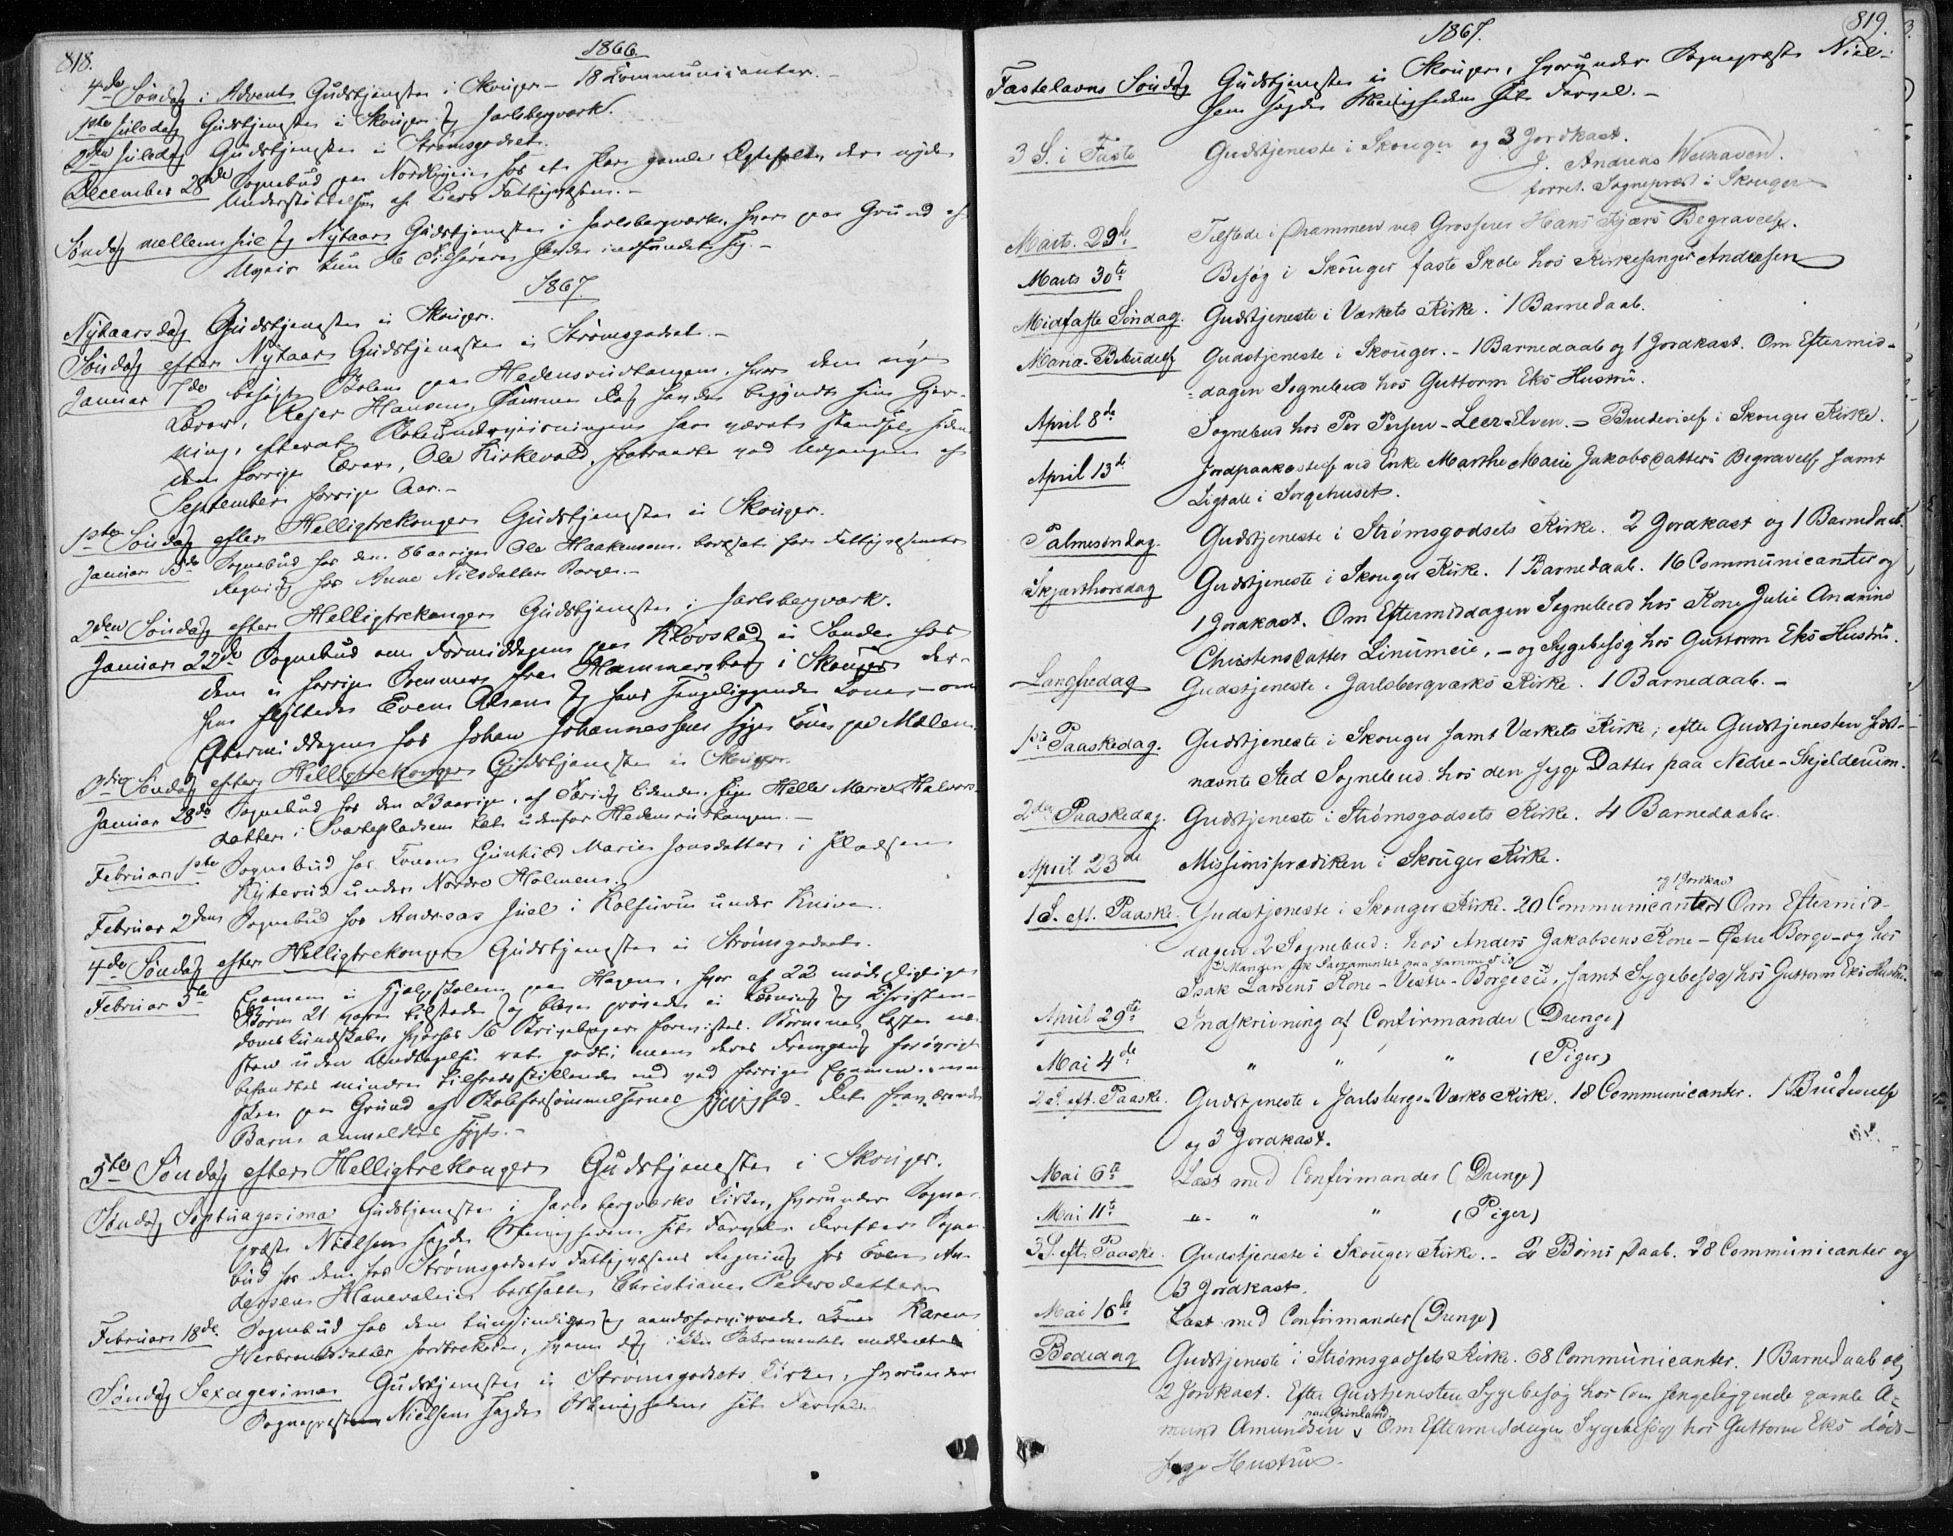 818.
1866.
4de Søndag i Advent Gudstjeneste i Skouger – 18 Communicanter. –
1ste Juledag Gudstjeneste i Skouger og Jarlsbergværk.
2den Juledag Gudstjeneste i Strømsgodset.
December 28de Sognebud paa Nordbyeie hos et Par gamle Ægtefolk, der nyde
Understøttelse af Lier Fattigvæsen. –
Søndag mellem Jul og Nytaar Gudstjeneste i Jarlsbergværk, hvor paa Grund af
Uveir kun 16 Tilhørere havde indfundet sig. –
1867.
Nytaarsdag Gudstjeneste i Skouger.
Søndag efter Nytaar Gudstjeneste i Strømsgodset. –
Januar 7de besøgte Skolen paa Hedensrudtangen, hvor den nye
Lærer, Rejer Hansen, samme Dag havde begyndt sin Gjer-
ning, efterat Skoleundervisningen har været standset siden
den forrige Lærer, Ole Kirkevold, fratraadte ved Udgangen af
September forrige Aar. –
1ste Søndag efter Helligtrekonger Gudstjeneste i Skouger.
Januar Sognebud hos den 86 aarige Ole Haakensen, bortsat for Fattigvæsenets
Regning hos Anne Nilsdatter Borge. –
2den Søndag efter Helligtrekonger Gudstjeneste i Jarlsbergværk.
Januar 22de Sognebud om Formiddagen paa Kløvstad i Sande hos
den i forrige Sommer fra Hammersborg i Skouger der-
hen flyttede Even Olsens og hans sengeliggende Kone – om
Eftermiddagen hos Johan Johannessens syge Kone paa Mælen
3die Søndag efter Helligtrekonger Gudstjeneste i Skouger.
Januar 28de Sognebud hos den 23aarige, af Tæring lidende, Pige Helle Marie Halvors-
datter i Svartepladsen tæt udenfor Hedensrudtangen. –
Februar 1ste Sognebud hos Konen Gunhild Marie Jonsdatter i Pladsen
Rytterud under Nordre Holmen.
Februar 2den Sognebud hos Andreas Juel i Kolsurun under Knive.
4de Søndag efter Helligtrekonger Gudstjeneste i Strømsgodset.
Februar 5te Examen i Hjelpskolen paa Hagen, hvor af 22 mødepligtige
Børn 21 vare tilstede og bleve prøvede i Læsning og Christen-
domskundskab, hvorhos 16 Skrivebøger foreviistes. Børnene læste næ-
sten uden Undtagelse ret godt; men deres Fremgang forøvrigt
befandtes mindre tilfredsstillende end ved forrige Examen,
paa Grund af Skoleforsømmelsernes Hyppighed. Det fraværende
Barn anmeldtes sygt. –
5te Søndag efter Helligtrekonger Gudstjeneste i Skouger.
Søndag Septuagesima Gudstjeneste i Jarlsbergværks Kirke, hvorunder Sogne-
præst Nielsen sagde Menigheden sit Farvel. Derefter Sogne-
bud hos den for Strømsgodsets Fattigvæsens Regning hos Even An-
dersen Hanevoldeie bortsatte Christiane Pedersdatter
Februar 18de Sognebud hos den tungsindige og aandsforvirrede Kone Karen
Herbrandsdatter Jordbrekeie, hvem dog ikke Sakramentet meddeeltes
Søndag Sexagesima Gudstjeneste i Strømsgodsets Kirke, hvorunder
Sognepræst Nielsen sagde Menigheden sit Farvel.
819.
1867.
Fastelavns Søndag Gudstjeneste i Skouger, hvorunder Sognepræst Niel-
sen sagde Menigheden sit Farvel. –
3 S. i Faste Gudstjeneste i Skouger og 3 Jordkast.
J. Andreas Welhaven.
forret. Sognepræst i Skouger
Marts. 29de Tilstede i Drammen ved Grosserer Hans Kjærs Begravelse.
Marts 30te Besøg i Skouger faste Skole hos Kirkesanger Andresen
Midfaste Søndag. Gudstjeneste i Værkets Kirke. 1 Barnedaab.
Maria-Bebudelse Gudstjeneste i Skouger. – 1 Barnedaab og 1 Jordkast. Om Eftermid-
dagen Sognebud hos Guttorm Eks Hustru.
April 8de Sognebud hos Per Persen – Leer-Elven. = Brudevielse i Skouger Kirke.
April 13de Jordpaakastelse ved Enke Marthe Marie Jakobsdatters Begravelse samt
Ligtale i Sørgehuset.
Palmesøndag. Gudstjeneste i Strømsgodsets Kirke. 2 Jordkast og 1 Barnedaab.
Skjærthorsdag Gudstjeneste i Skouger Kirke. 1 Barnedaab. 16 Communicanter og
1 Jordkast. Om Eftermiddagen Sognebud hos Kone Julie Andrine
Christensdatter Linumeie, – og Sygebesøg hos Guttorm Eks Hustru.
Langfredag Gudstjeneste i Jarlsbergværks Kirke. 1 Barnedaab. –
1ste Paaskedag. Gudstjeneste i Skouger samt Værkets Kirke; efter Gudstjenesten sidst-
nævnte Sted Sognebud hos den syge Datter paa Nedre-Skjelderum.
2den Paaskedag. Gudstjeneste i Strømsgodsets Kirke. 4 Barnedaaber.
April 23de Missionsprædiken i Skouger Kirke.
og 1 Jordkast
1 S. eft. Paaske. Gudstjeneste i Skouger Kirke. 20 Communicanter Om Eftermid-
dagen 2 Sognebud: hos Anders Jakobsens Kone – Østre Borge – og hos
Manden fik Sacramentet paa samme Tid
Isak Larsens Kone – Vestre-Borgeeie, samt Sygebesøg hos Guttorm Eks Hustru.
April 29de Indskrivning af Confirmander (Drenge)
Mai 4de " " " (Piger)
2 S. eft. Paaske. Gudstjeneste i Jarlsbergs-Værks Kirke. 18 Communicanter. 1 Brudevielse
og 3 Jordkast.
Mai 6te Læst med Confirmander (Drenge)
Mai 11te " " " (Piger)
3 S. eft. Paaske. Gudstjeneste i Skouger Kirke. – 2 Børns Daab. 28 Communicanter og
3 Jordkast.
Mai 16de Læst med Confirmander (Drenge)
Bededag Gudstjeneste i Strømsgodsets Kirke. 68 Communicanter. 1 Barnedaab og
2 Jordkast. Efter Gudstjenesten Sygebesøg hos den sengeliggende gamle A-
paa Grinland
mund Amundsen v Om Eftermiddagen Sygebesøg hos Guttorm Eks døds-
syge Hustru.